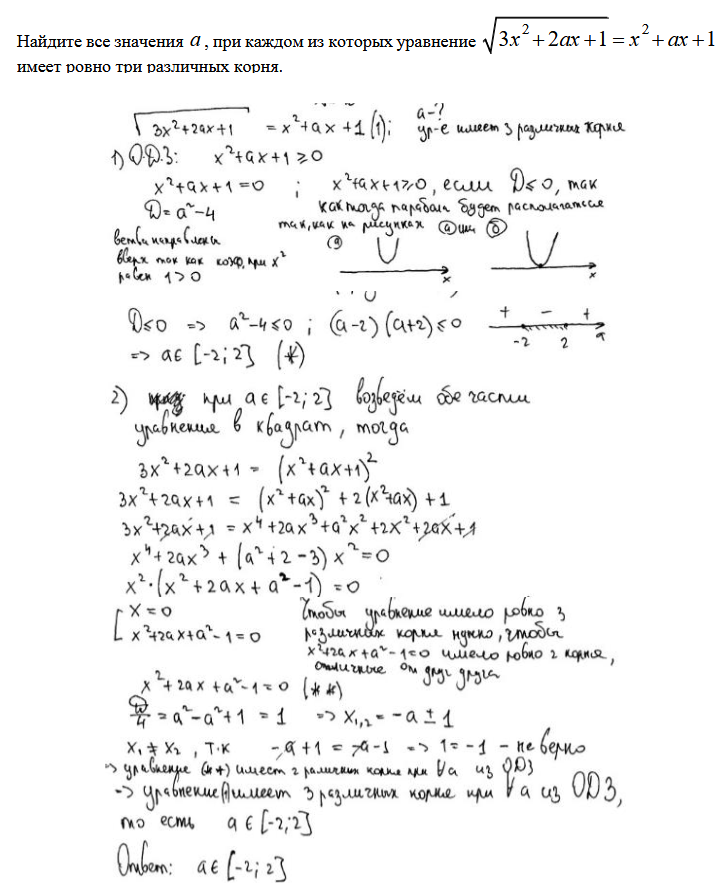 Найдите все значения a, при каждом из которых уравнение √(3x²+2ax+1) = x²+ax+1
имеет ровно три различных корня.
√(3x²+2ax+1) = x²+ax+1 (1); a-?
ур-е имеет 3 различных корня
1) О.Д.З: x²+ax+1 ≥ 0
x²+ax+1=0 ; x²+ax+1≥0, если D≤0, так
D = a²-4 как тогда парабола будет располагаться
так, как на рисунках (а) или (б)
ветви направлены
вверх так как коэф. при x²
равен 1>0
(а) x x
D≤0 => a²-4≤0 ; (a-2)(a+2)≤0 + - +
-2 2 a
=> a∈[-2;2] (*)
2) при a∈[-2;2] возведём обе части
уравнения в квадрат, тогда
3x²+2ax+1 = (x²+ax+1)²
3x²+2ax+1 = (x²+ax)²+2(x²+ax)+1
3x²+2ax+1 = x⁴+2ax³+a²x²+2x²+2ax+1
x⁴+2ax³+(a²+2-3)x²=0
x²·(x²+2ax+a²-1)=0
[ x=0 Чтобы уравнение имело ровно 3
x²+2ax+a²-1=0 различных корня нужно, чтобы
x²+2ax+a²-1=0 имело ровно 2 корня,
отличные от друг друга
x²+2ax+a²-1=0 (**)
D/4 = a²-a²+1 = 1 => x₁,₂ = -a±1
x₁≠x₂, т.к -a+1 = -a-1 => 1=-1 - неверно
=> уравнение (**) имеет 2 различных корня при ∀a из ОДЗ
=> уравнение (1) имеет 3 различных корня при ∀a из ОДЗ,
то есть a∈[-2;2]
Ответ: a∈[-2;2]